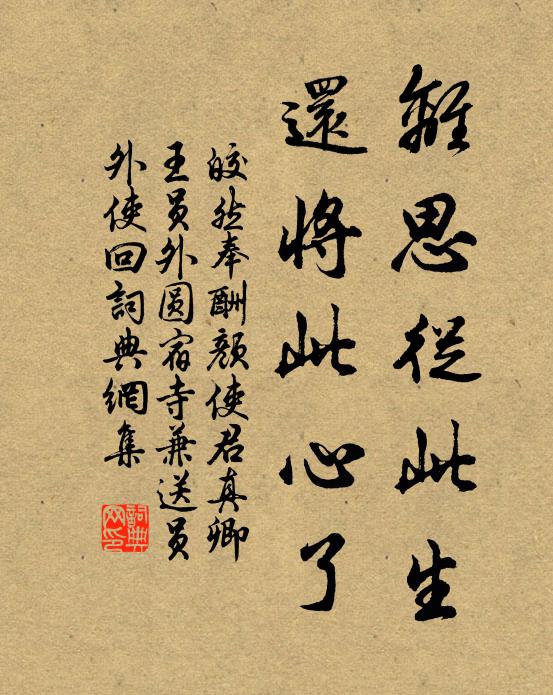 離思從此生
還將此心了
皎然奉酬顏使君真卿
王員外圓宿寺兼送員
外使回詞典網集
詞典
网印